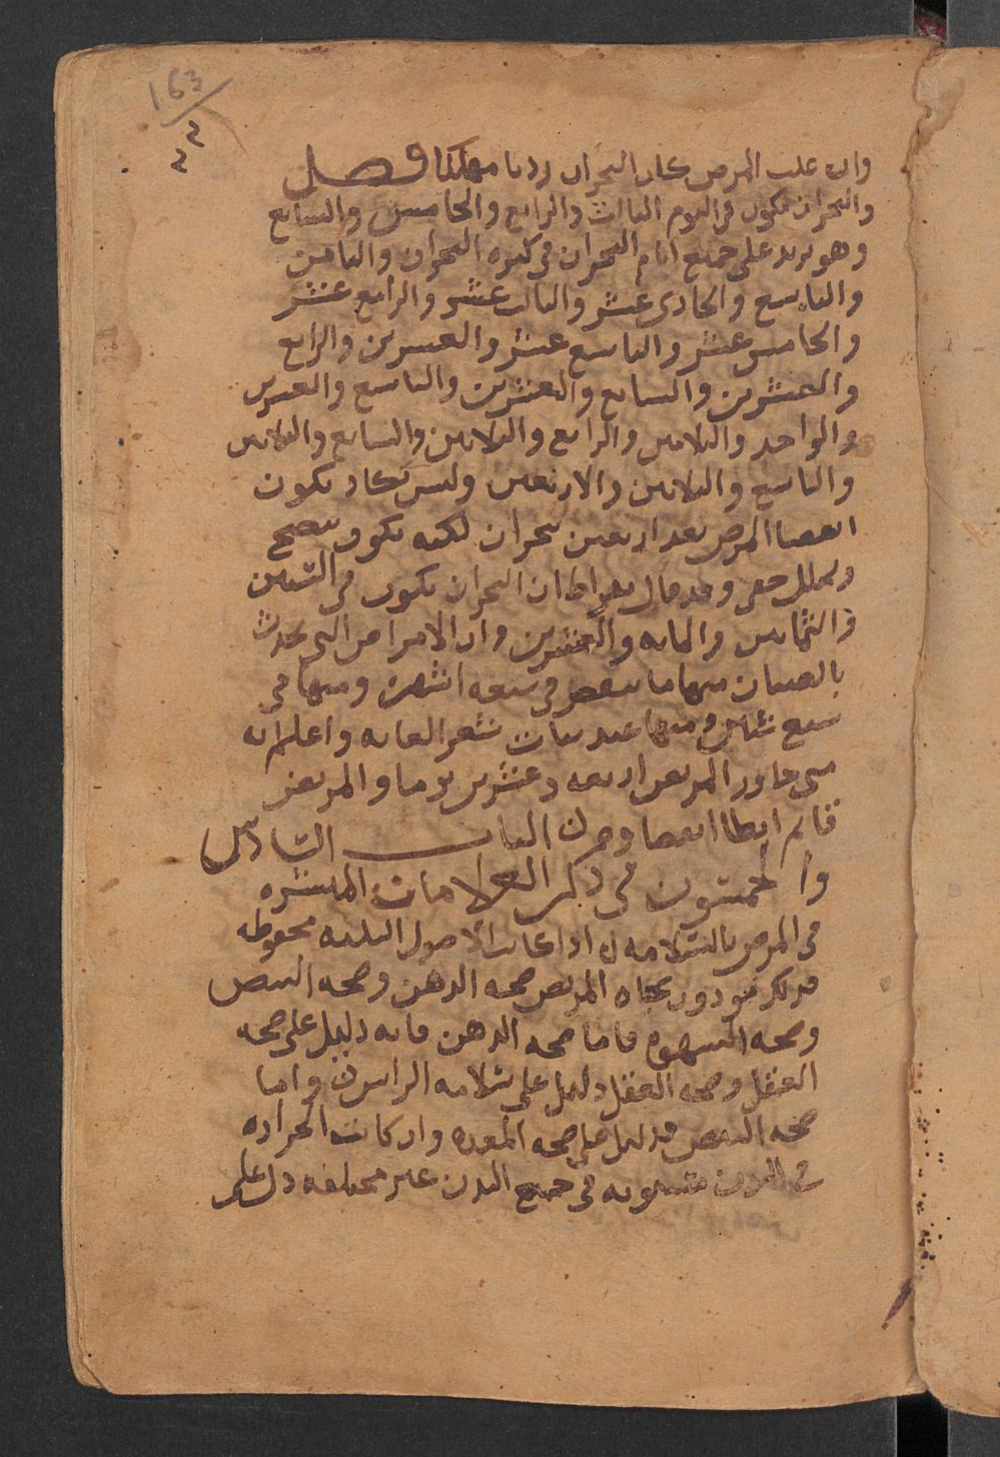 163
٢٢
وان غلب المرض كان البحران رديا مهلكا فصل
والبحران يكون في اليوم الثالث والرابع والخامس والسابع
وهو يزيد على جميع ايام البحران في كثرة البحران والثامن
والتاسع والحادى عشر والثالث عشر والرابع عشر
والخامس عشر والتاسع عشر والعشرين والرابع
والعشرين والسابع والعشرين والتاسع والعشرين
والواحد والثلاثين والرابع والثلاثين والسابع والثلاثين
والتاسع والثلاثين والاربعين وليس يكاد يكون
انقضا المرض بعد اربعين ببحران لكنه يكون بنضج
وتحلل خفى وقد قال بقراط ان البحران يكون في الستين
والثمانين والمايه والعشرين وان الامراض التى تحدث
بالصبيان منها ما ينقضى في سبعه اشهر ومنها في
سبع سنين ومنها عند نبات شعر العانه واعلم انه
متى جاوز المريض اربعه وعشرين يوما والمريض
قايم ابطا انقضا وه الباب السادس
والخمسون في ذكر العلامات المبشره
في المرض بالسلامه اذا كانت الاصول الثلثه محفوظه
المريض صحه الذهن وصحه النبض
وصحه الشهوه فاما صحه الذهن فانه دليل على صحه
العقل وصحه العقل دليل على سلامه الراس واما
صحه النبض فدليل على صحه المعده وان كانت الحراره
في البدن مستويه في جميع البدن غير مختلفه دل على